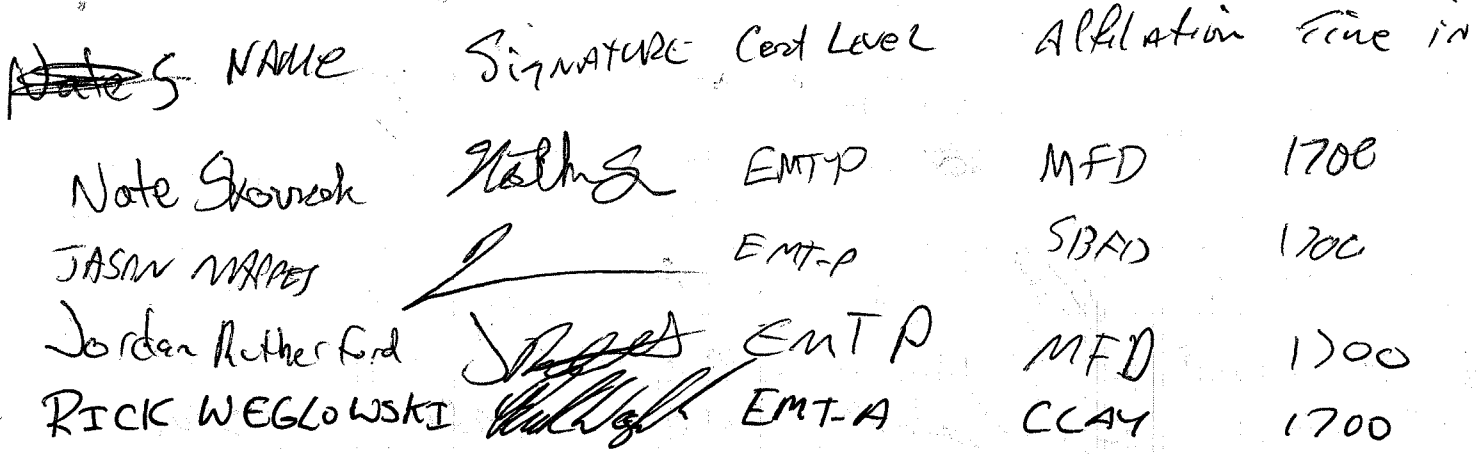 NAME Signature Cert Level Affiliation Time in
Nate EMT-P MFD 1700
JASON MAPPES EMT-P SBFD 1700
Jordan Rutherford EMT P MFD 1700
RICK WEGLOWSKI EMT-A CLAY 1700